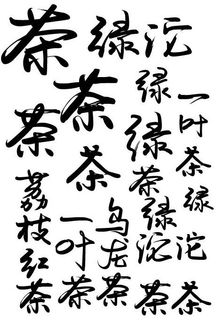 茶
绿沱
茶
茶
绿
一叶茶
绿
茶
茶
绿
荔枝红茶
一叶茶
乌龙茶
绿沱茶
沱茶